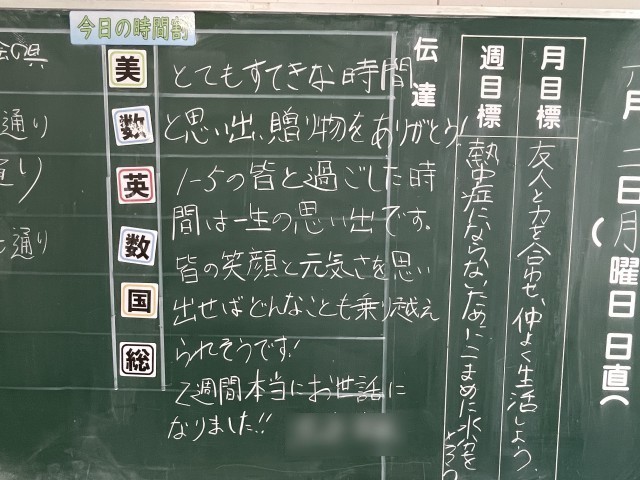 今日の時間割
美
数
英
数
国
総
通り
通り
通り
とてもすてきな時間
と思い出、贈り物をありがとう!
1-5の皆と過ごした時
間は一生の思い出です。
皆の笑顔と元気さを思い
出せばどんなことも乗り越え
られそうです!
2週間本当にお世話に
なりました!!
伝達
週目標
熱中症にならないためにこまめに水分を
月目標
友人と力を合わせ、仲よく生活しよう。
月
日
(月曜日
日直(